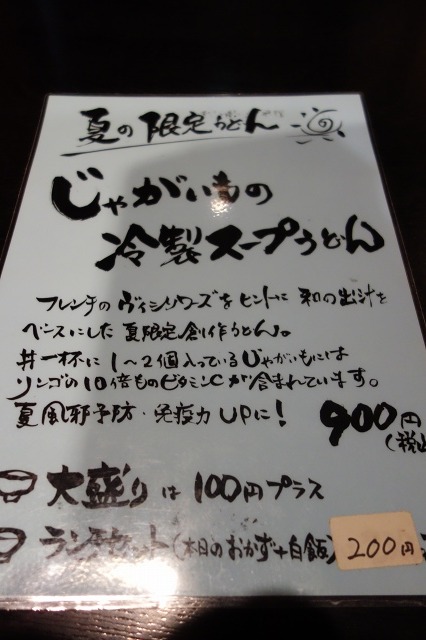 夏の限定うどん
じゃがいもの
冷製スープうどん
フレンチのヴィシソワーズをヒントに 和の出汁を
ベースにした夏限定創作うどん。
丼一杯に1〜2個入っているじゃがいもには
リンゴの10倍ものビタミンCが含まれています。
夏風邪予防・免疫力UPに!
900円
(税込
大盛りは100円プラス
ランチセット(本日のおかず+白飯) 200円